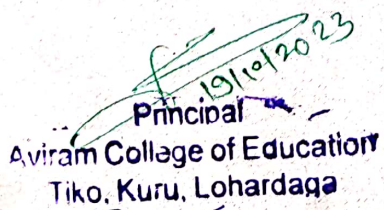 19/10/2023
Principal
Aviram College of Education
Tiko, Kuru, Lohardaga